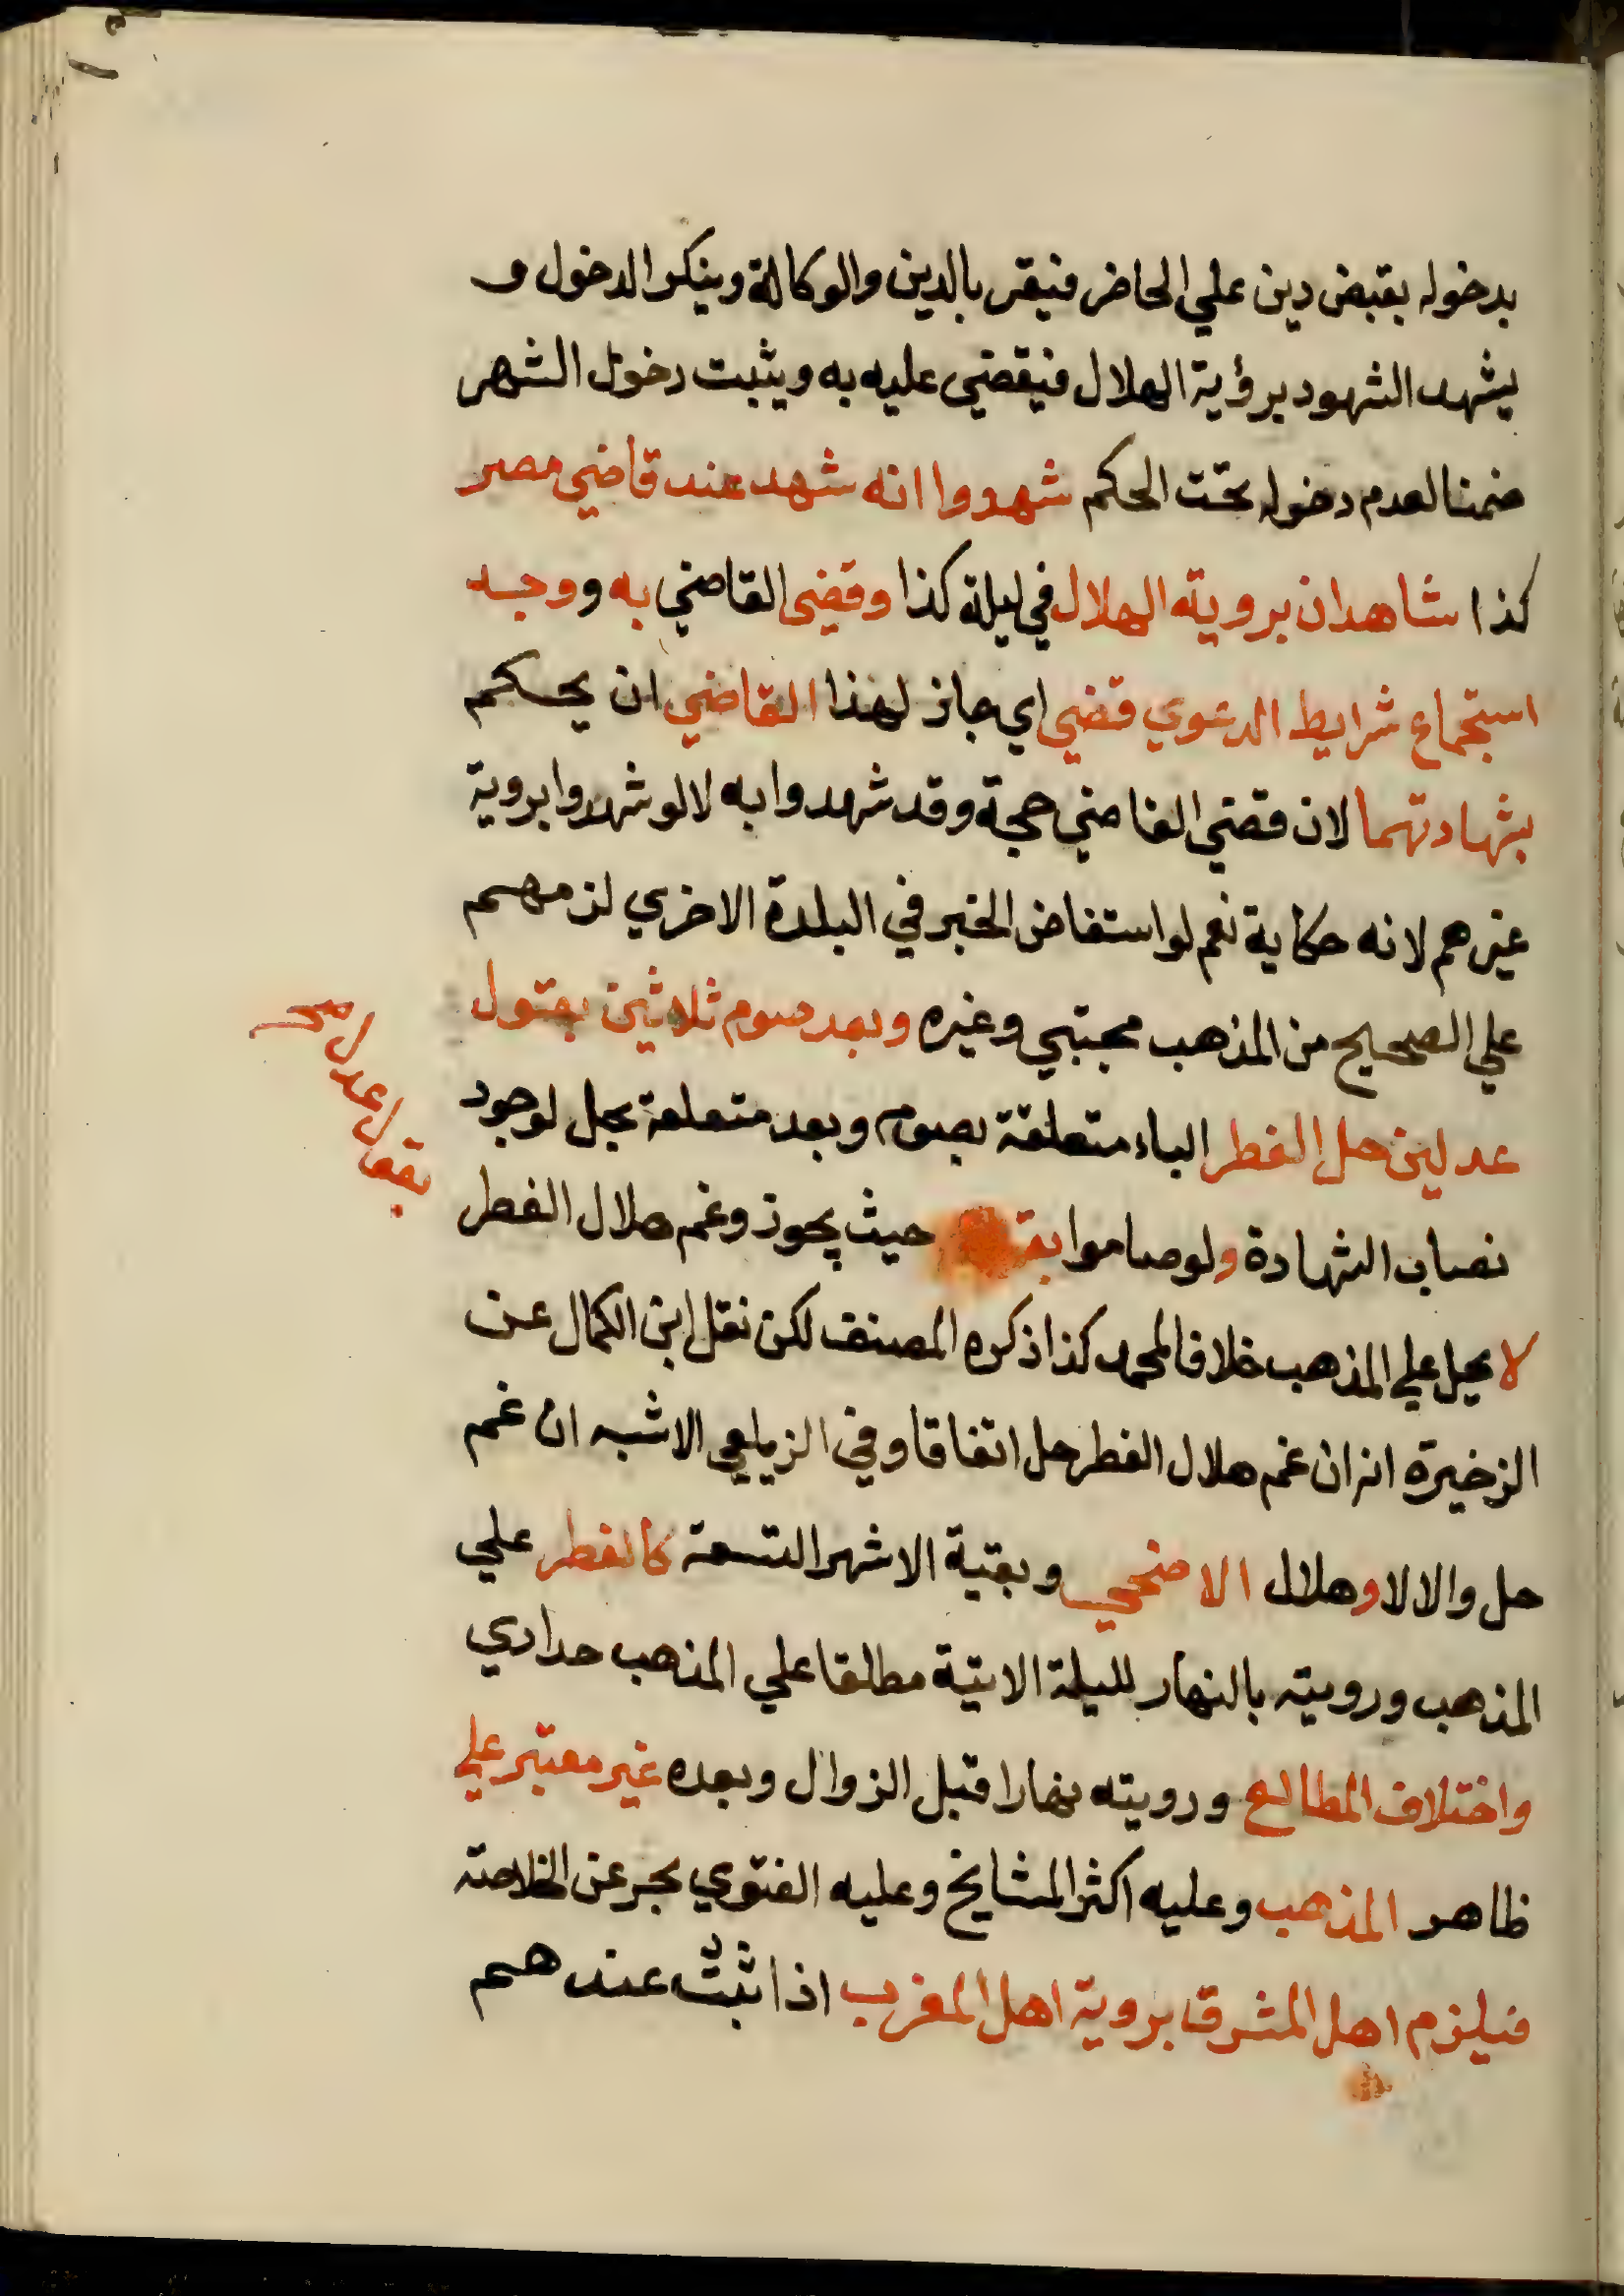 بدخوله بقبض دين علي الحاضر فيقر بالدين والوكالة وينكر الدخول و
يشهد الشهود برؤية الهلال فيقضي عليه به ويثبت دخول الشهر
ضمنا لعدم دخوله تحت الحكم شهدوا انه شهد عند قاضي مصر
كذا شاهدان بروية الهلال في ليلة كذا وقضي القاضي به ووجد
استجماع شرايط الدعوي قضي اي جاز لهذا القاضي ان يحكم
بشهادتهما لان قضي القاضي حجة وقد شهدوا به لا لو شهدوا بروية
غيرهم لانه حكاية نعم لو استفاض الخبر في البلدة الاخري لزمهم
علي الصحيح من المذهب مجتبي وغيره وبعد صوم ثلاثين بقول
عدلين حل الفطر الباء متعلقة بصوم وبعد متعلقة بحل لوجود
نصاب الشهادة ولو صاموا حيث يجوز وغم هلال الفطر
بقول عدل صح
لا يحل علي المذهب خلافا لمحمد كذا ذكره المصنف لكن نقل ابن الكمال عن
الزخيرة انه ان غم هلال الفطر حل اتفاقا وفي الزيلعي الاشبه ان غم
حل والا لا وهلال الاضحي وبقية الاشهر التسعة كالفطر علي
المذهب ورويته بالنهار لليلة الاتية مطلقا علي المذهب حدادي
واختلاف المطالع ورويته نهارا قبل الزوال وبعده غير معتبر علي
ظاهر المذهب وعليه اكثر المشايخ وعليه الفتوي بحر عن الخلاصة
فيلزم اهل المشرق بروية اهل المغرب اذا ثبت عندهم